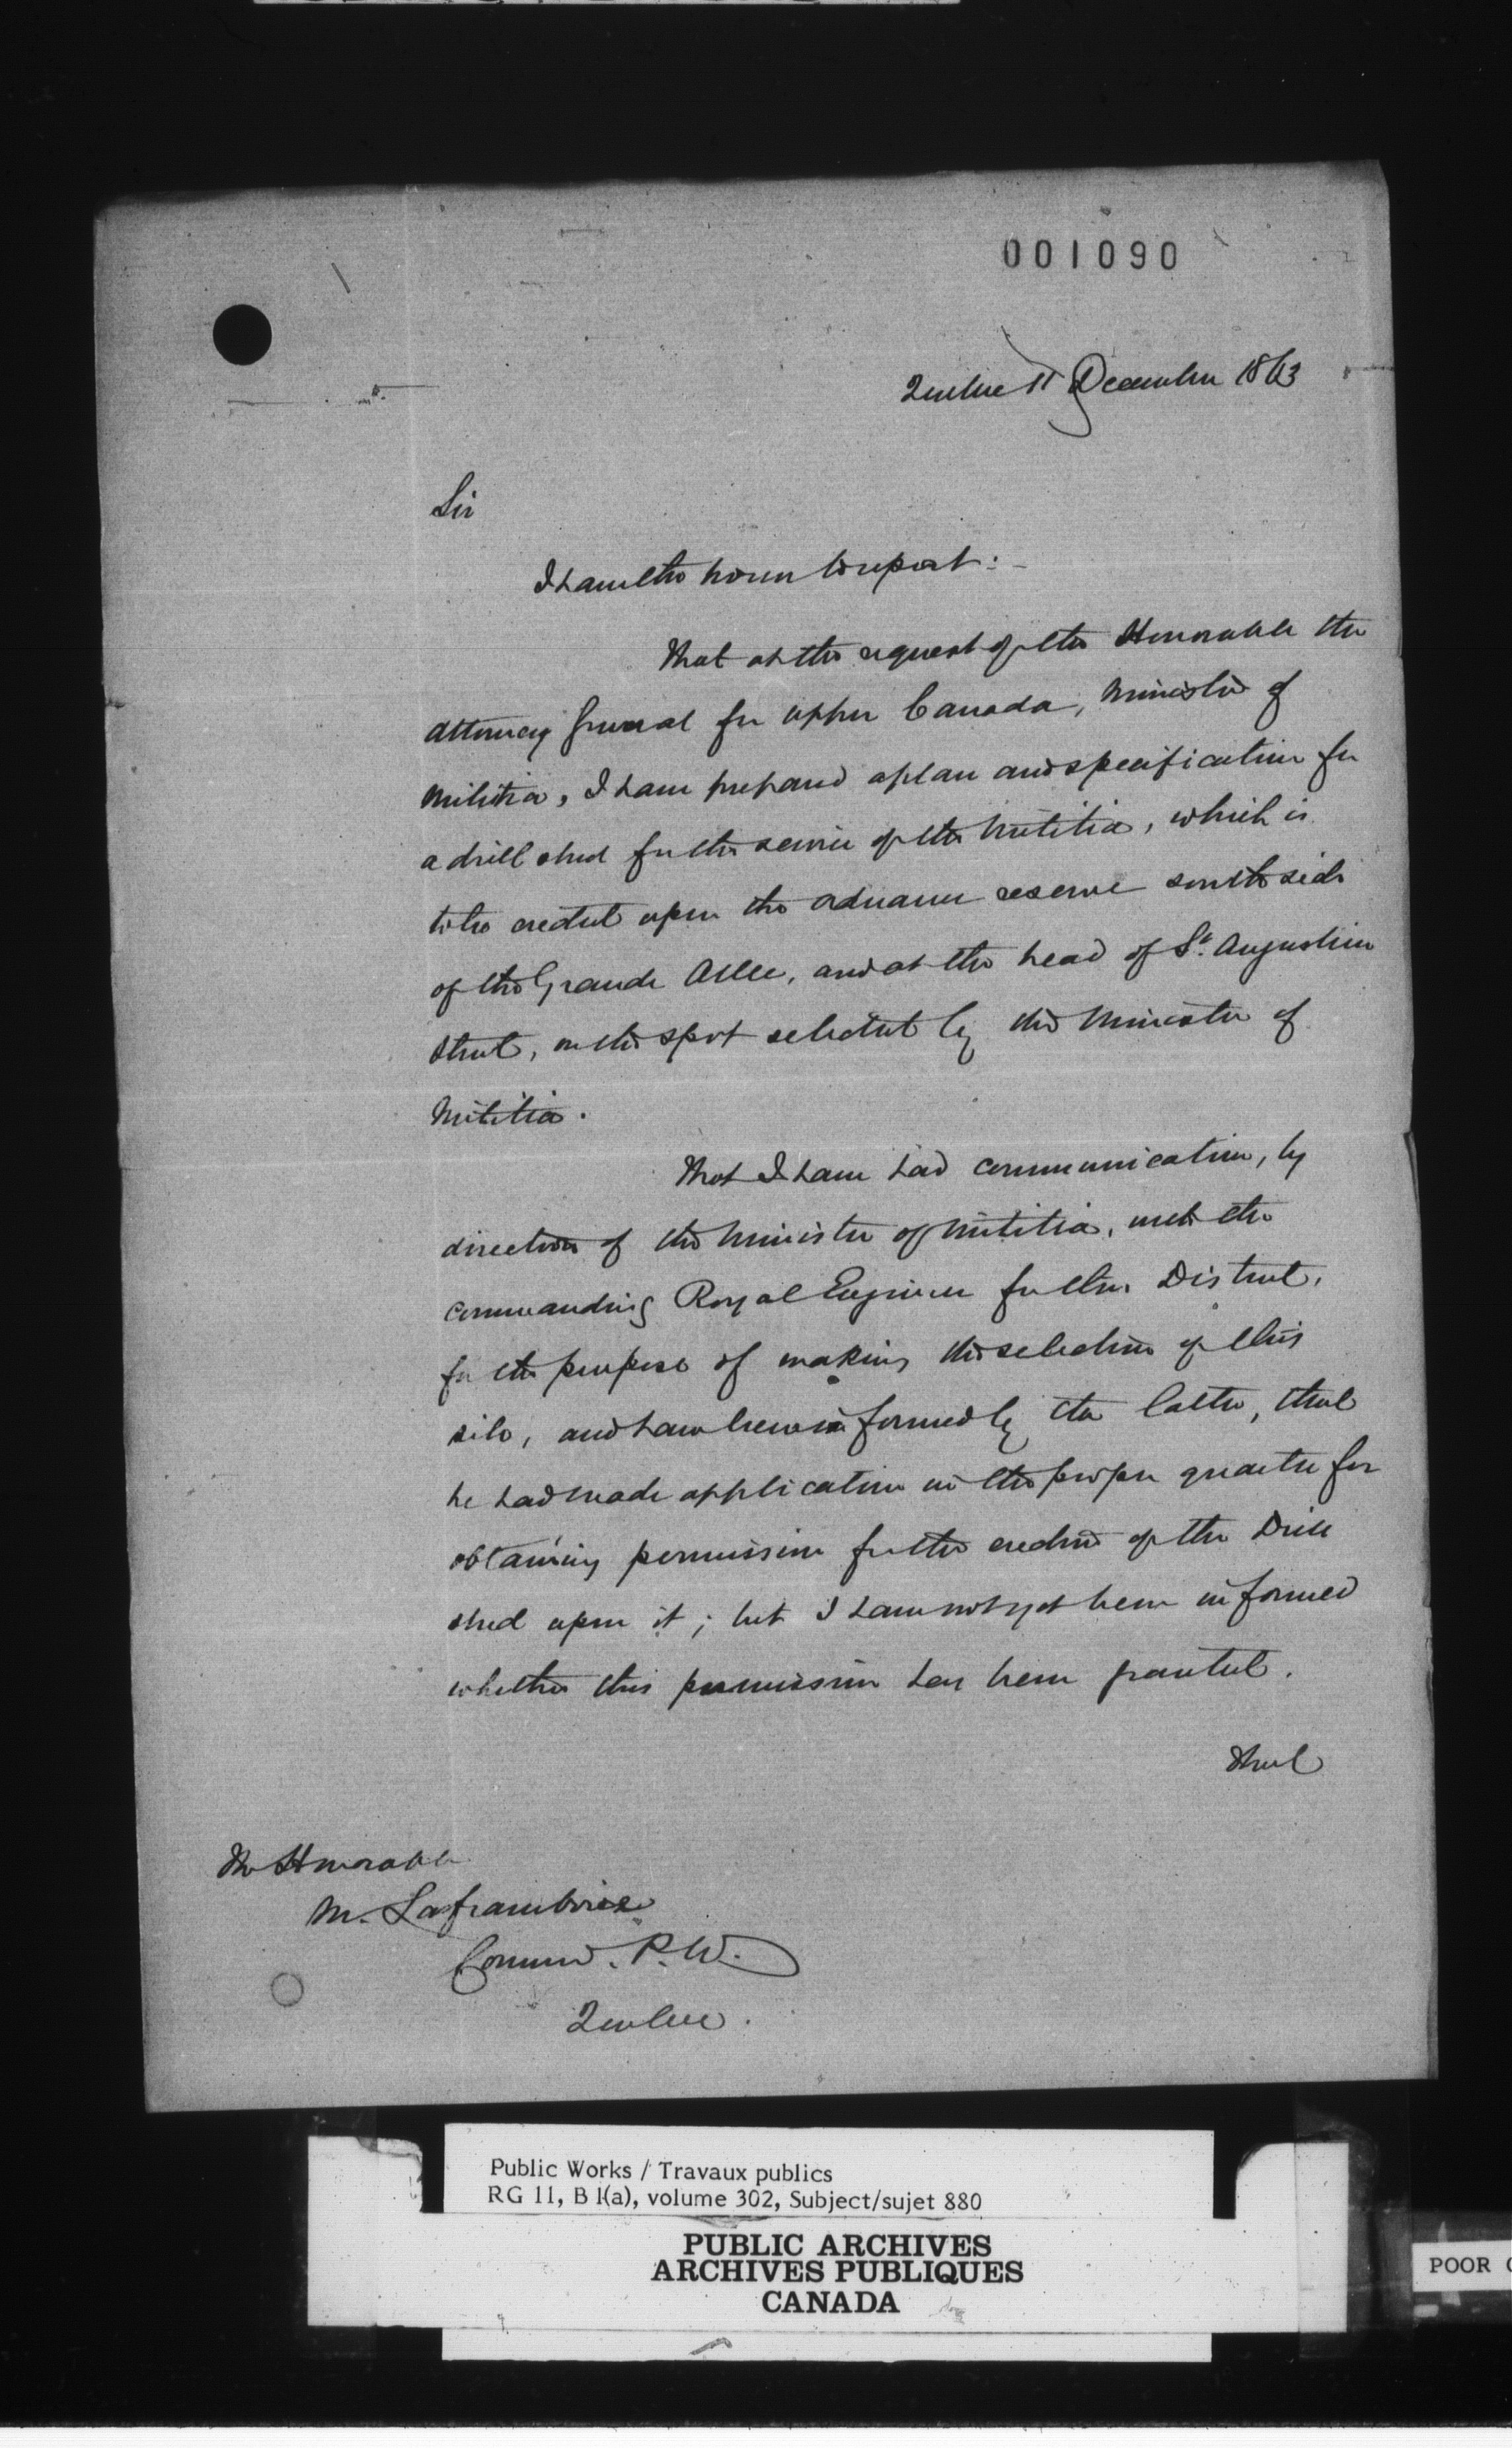 001090
Quebec 11 December 1863
Sir
I have the honor to report :-
That at the request of the Honorable the
Attorney General for Upper Canada, Minister of
Militia, I have prepared a plan and specification for
a drill shed for the service of the Militia, which is
to be erected upon the ordnance reserve south side
of the Grande Allee, and at the head of St. Augustin
Street, on the spot selected by the Minister of
Militia.
That I have had communication, by
direction of the Minister of Militia, with the
Commanding Royal Engineer for this District,
for the purpose of making the selection of this
site, and have been informed by the latter, that
he had made application in the proper quarter for
obtaining permission for the erection of the Drill
shed upon it ; but I have not yet been informed
whether this permission has been granted.
That
The Honorable
M. Laframboise
Commr. P. W.
Quebec.
Public Works / Travaux publics
RG 11, B 1(a), volume 302, Subject/sujet 880
PUBLIC ARCHIVES
ARCHIVES PUBLIQUES
CANADA
POOR